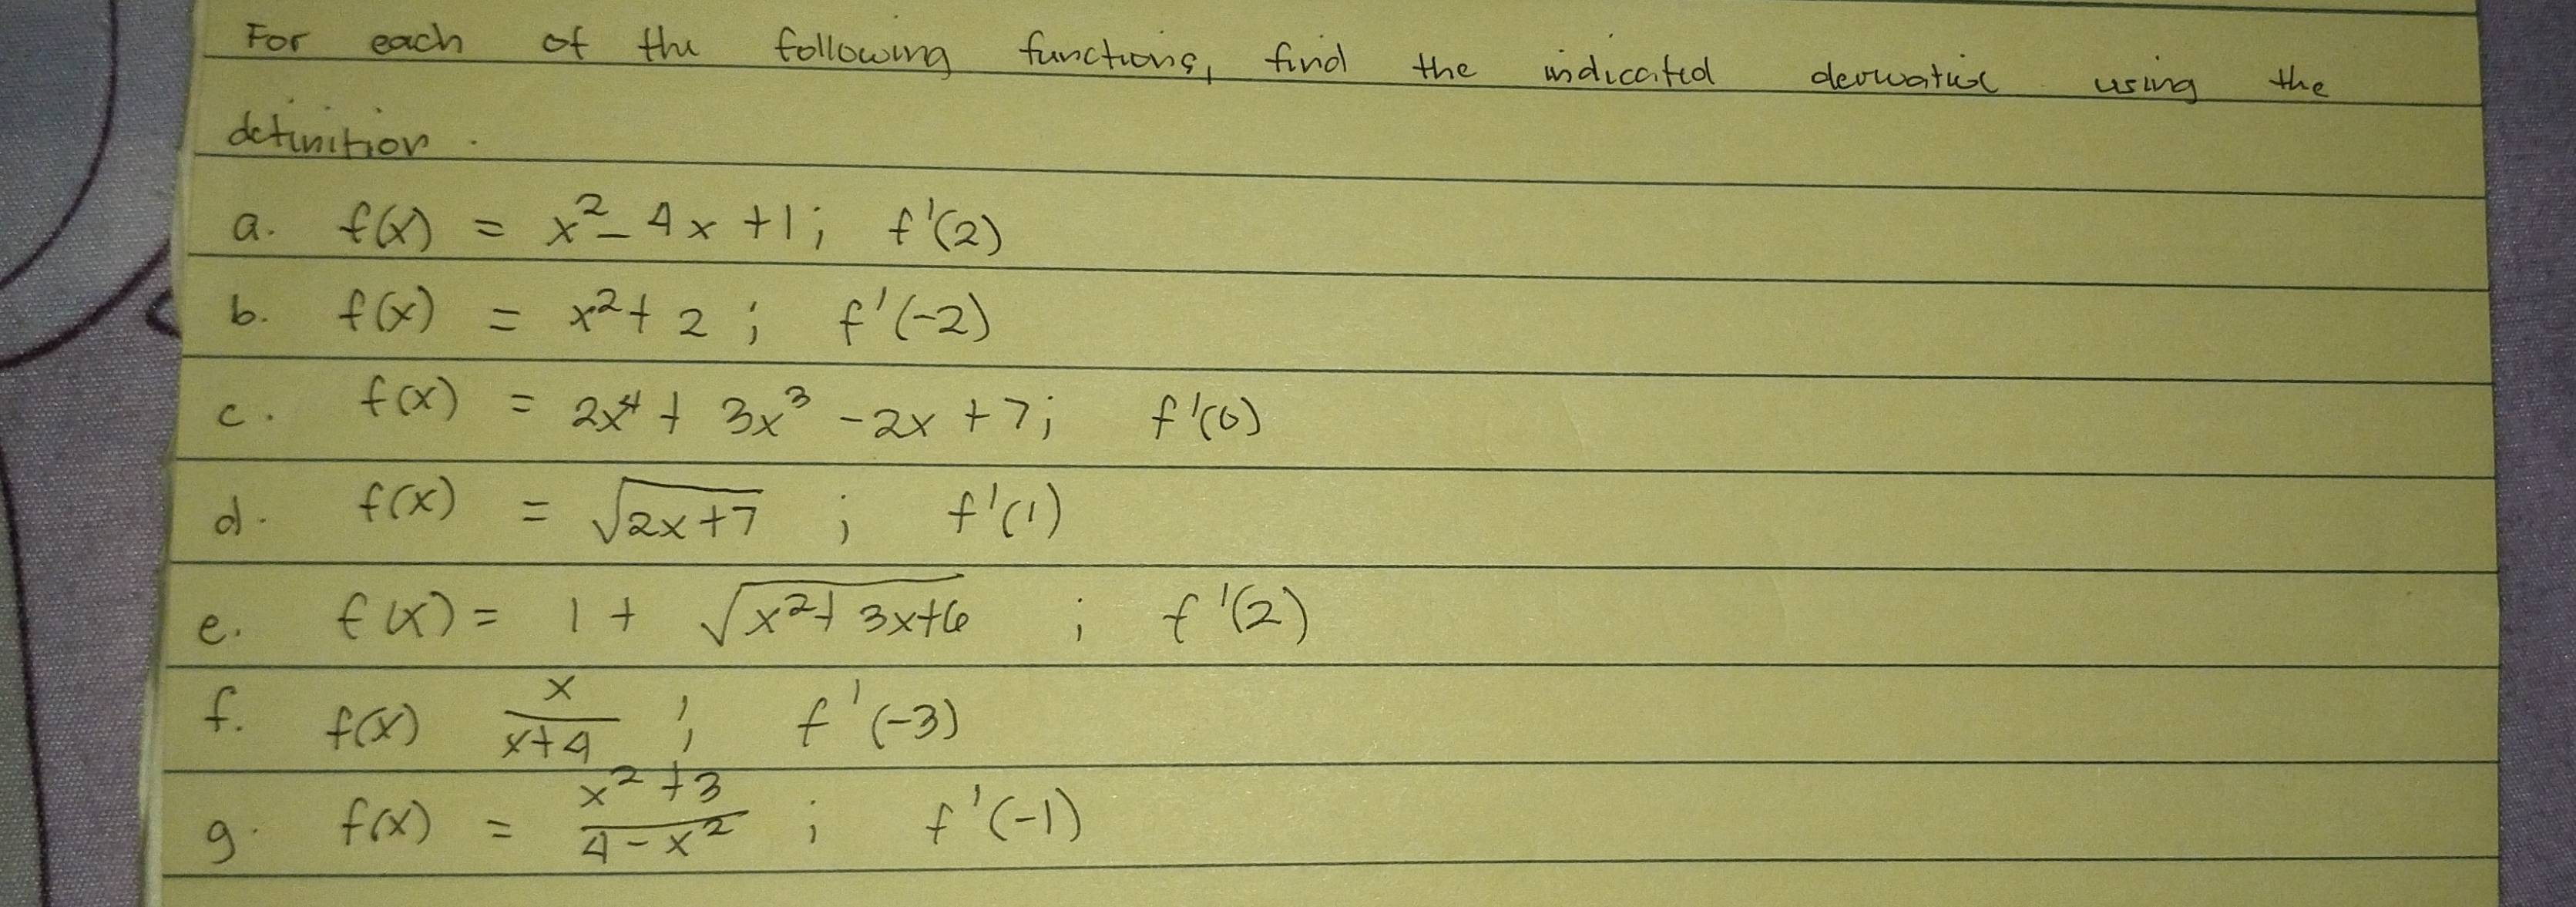 For each of the following functions, find the indicated derivative using the
definition.
a. f(x) = x² - 4x + 1; f'(2)
b. f(x) = x² + 2; f'(-2)
c. f(x) = 2x⁴ + 3x³ - 2x + 7; f'(0)
d. f(x) = √(2x+7); f'(1)
e. f(x) = 1 + √(x² + 3x + 6); f'(2)
f. f(x) x/(x+4); f'(-3)
g. f(x) = (x² + 3)/(4 - x²); f'(-1)